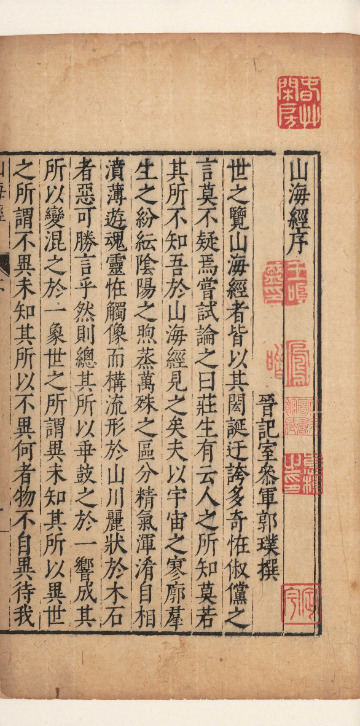 山海經序
晉記室參軍郭璞撰
世之覽山海經者皆以其閎誕迂誇多奇怪俶儻之
言莫不疑焉嘗試論之曰莊生有云人之所知莫若
其所不知吾於山海經見之矣夫以宇宙之寥廓羣
生之紛紜陰陽之煦蒸萬殊之區分精氣渾淆自相
濆薄遊魂靈怪觸像而構流形於山川麗狀於木石
者惡可勝言乎然則總其所以乖鼓之於一響成其
所以變混之於一象世之所謂異未知其所以異世
之所謂不異未知其所以不異何者物不自異待我
山海經